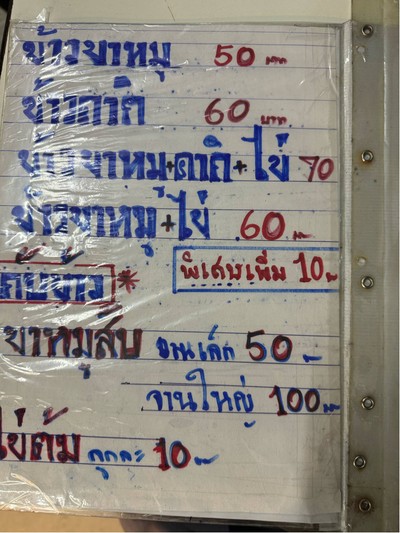 ข้าวขาหมู 50 บาท
ข้าวคากิ 60 บาท
ข้าวขาหมู+คากิ+ไข่ 70
ข้าวขาหมู+ไข่ 60 บ
พิเศษเพิ่ม 10 บ
กับข้าว *
ขาหมูสับ จานเล็ก 50 บ
จานใหญ่ 100 บ
ไข่ต้ม ลูกละ 10 บ